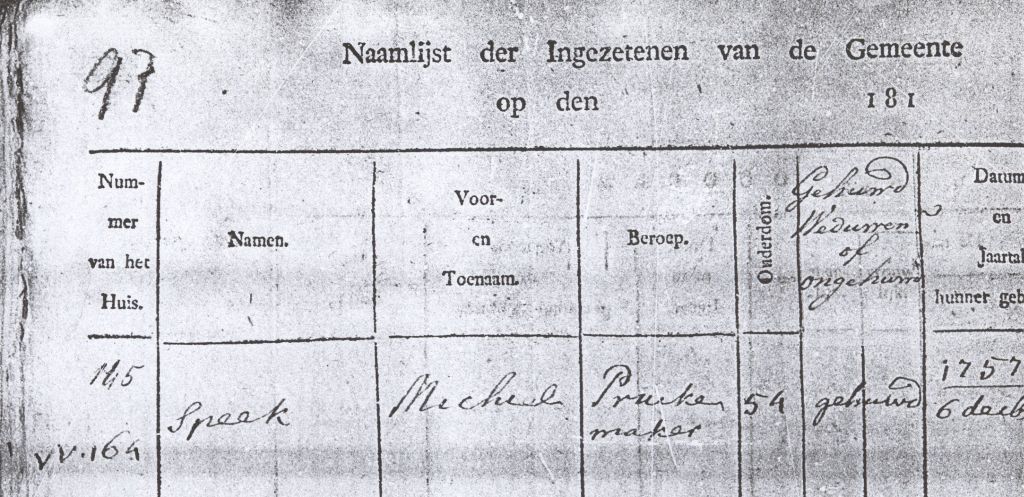 97
Naamlijst der Ingezetenen van de Gemeente
op den 181
Num-
mer
van het
Huis.
Namen.
Voor-
en
Toenaam.
Beroep.
Ouderdom.
Gehuwd
Weduwen
of
ongehuwd
Datum
en
Jaartal
hunner geb
145
VV.164
Speek
Michiel
Pruiken
maker
54
gehuwd
1757
6 decb